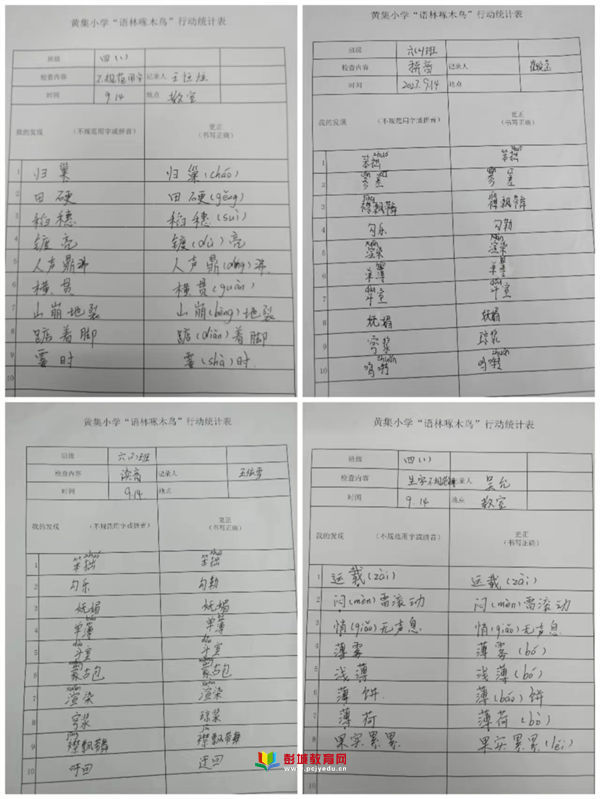 黄集小学“语林啄木鸟”行动统计表
班级 四(1)
检查内容 不规范用字 记录人
时间 9.14 地点 教室
我的发现 (不规范用字或拼音) 更正(书写正确)
1 归巢 归巢(cháo)
2 田硬 田硬(gěng)
3 稻穗 稻穗(suì)
4 镀亮 镀(dù)亮
5 人声鼎沸 人声鼎(dǐng)沸
6 横贯 横贯(guàn)
7 山崩地裂 山崩(bēng)地裂
8 踮着脚 踮(diǎn)着脚
9 霎时 霎(shà)时
10
黄集小学“语林啄木鸟”行动统计表
班级 六(1)班
检查内容 拼音 记录人
时间 2023.9.14 地点
我的发现 (不规范用字或拼音) 更正(书写正确)
1 笨拙 笨拙
2
3
4 勾乐 勾勒
5 渲染 渲染
6 单薄 单薄
7 斗室 斗室
8 妩媚 妩媚
9 穹浆 琼浆
10
黄集小学“语林啄木鸟”行动统计表
班级 六(2)班
检查内容 读音 记录人
时间 9.14 地点
我的发现 (不规范用字或拼音) 更正(书写正确)
1 笨拙 笨拙
2 勾乐 勾勒
3 妩媚 妩媚
4 单薄 单薄
5 斗室 斗室
6 蒙古包 蒙古包
7 渲染 渲染
8 穹浆 琼浆
9 襟飘带舞 襟飘带舞
10 迂回
黄集小学“语林啄木鸟”行动统计表
班级 四(1)
检查内容 记录人 吴允
时间 9.14 地点 教室
我的发现 (不规范用字或拼音) 更正(书写正确)
1 运载(zài) 运载(zài)
2 闷(mèn)雷滚动 闷(mèn)雷滚动
3 悄(qiǎo)无声息 悄(qiǎo)无声息
4 薄雾 薄雾(bó)
5 浅薄 浅薄(bó)
6 薄饼 薄(báo)饼
7 薄荷 薄荷(bò)
8 果实累累 果实累累(léi)
9
10
彭城教育网
www.pcjyedu.cn